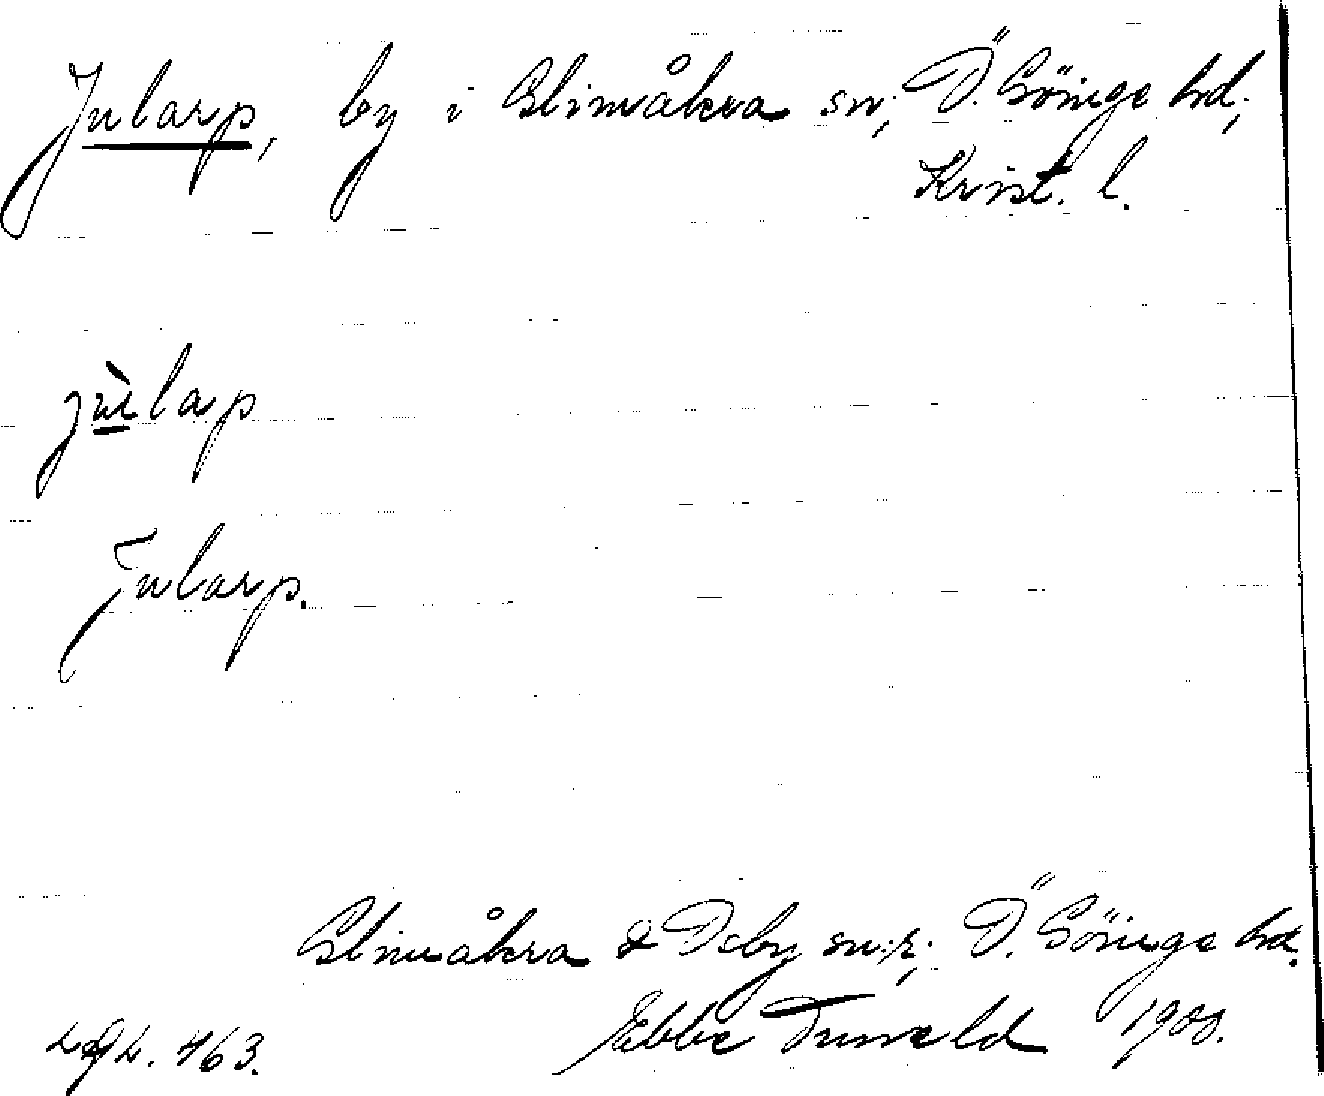 Jularp, by i Glimåkra sn, Ö. Göinge hd,
Krist. l.
jùlap
Jularp.
Glimåkra & Ö-by sn:r, Ö. Göinge hd.
Ebbe Tuneld 1900.
463.